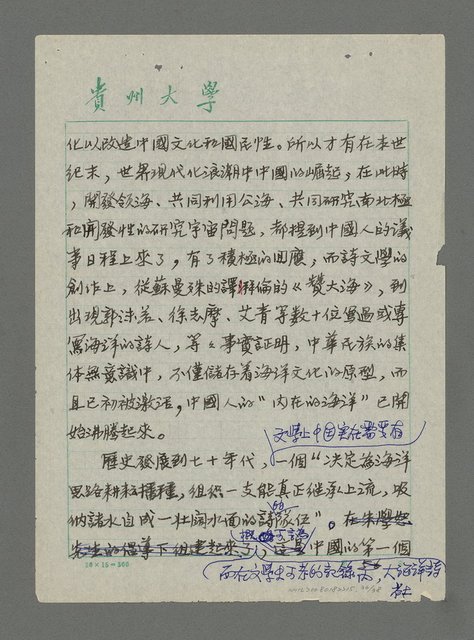 貴州大學
化以改造中國文化和國民性。所以才有在本世
紀末，世界現代化浪潮中中國的崛起，在此時
，開發領海、共同利用公海、共同研究南北極
和開發性的研究宇宙問題，都提到中國人的議
事日程上來了，有了積極的回應，而詩文學的
創作上，從蘇曼殊的譯拜倫的《贊大海》，到
出現郭沫若、徐志摩、艾青等數十位寫過或專
寫海洋的詩人，等々事實証明，中華民族的集
体無意識中，不僅儲存着海洋文化的原型，而
且已初被激活，中國人的“內在的海洋”已開
始沸騰起來。
文學上中国实在需要有
歷史發展到七十年代，一個“決定為海洋
思路耕耘播種，組织一支能真正继承上流，吸
納諸水自成一壯闊水面的詩的隊伍”。在朱學恕
先生的倡導下组建起來了，這是中國的第一個
而在文學史可考的記錄，大海洋詩
20×15=300